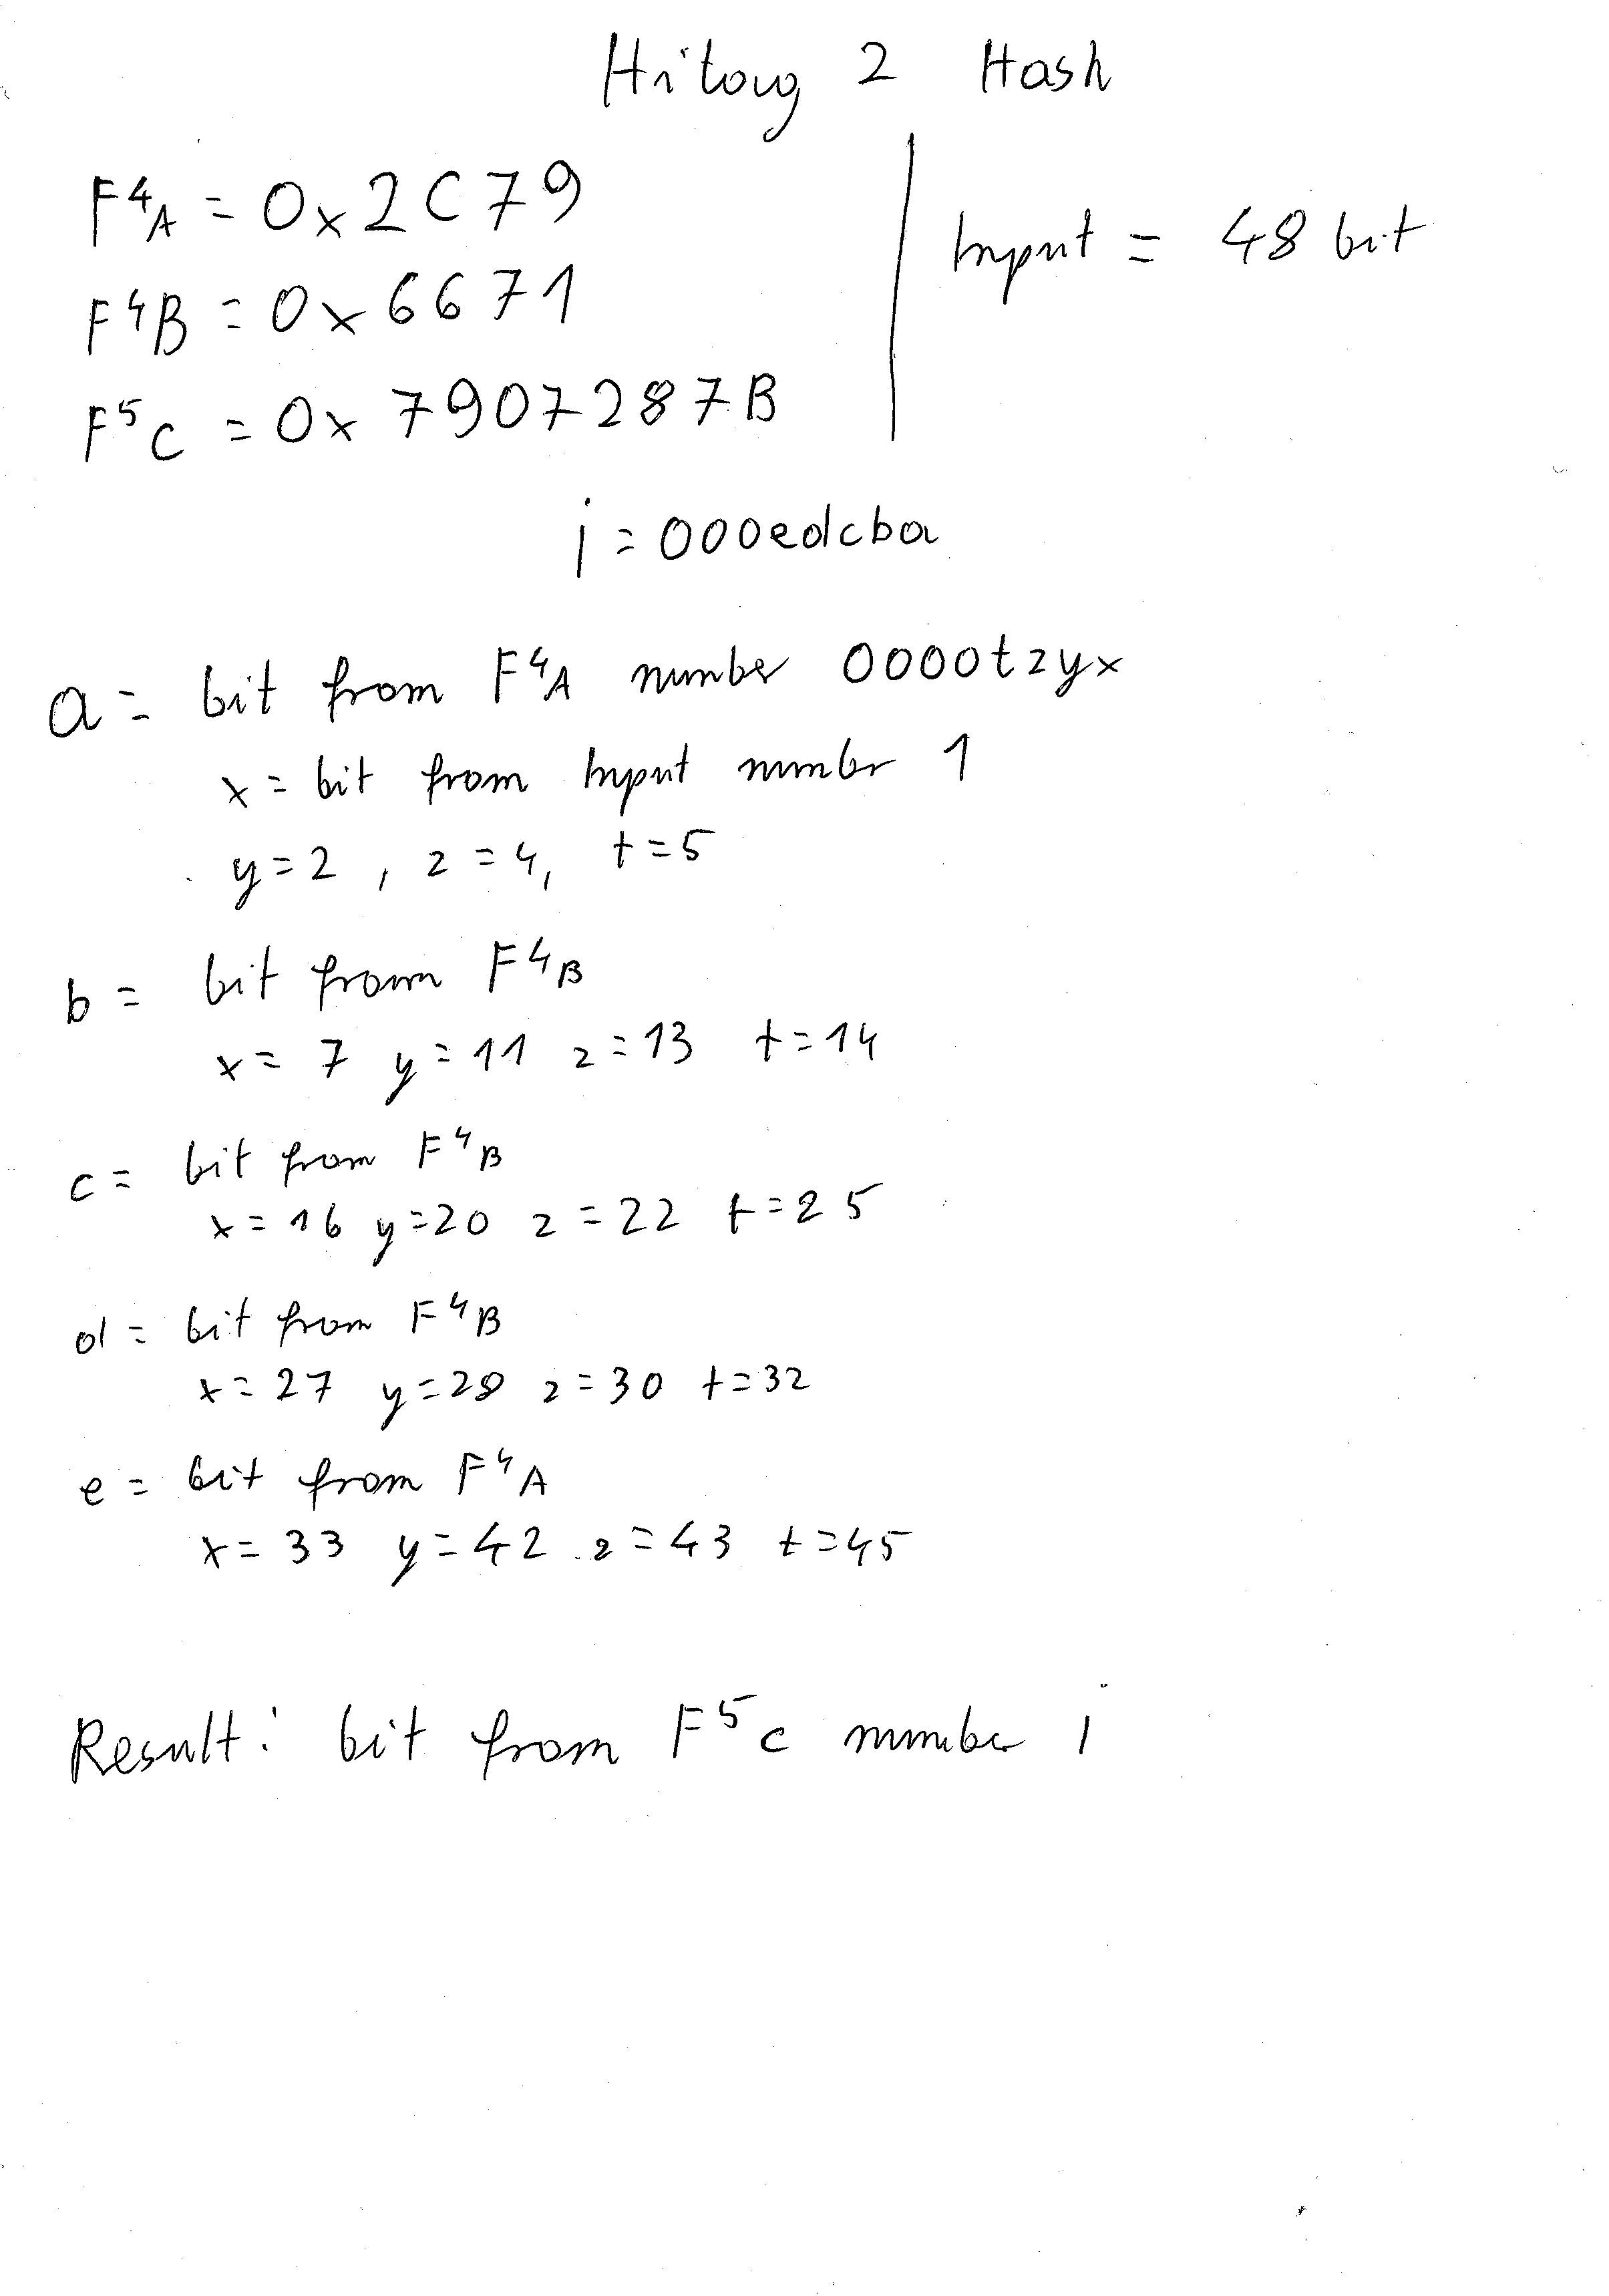 Hitag 2 Hash
F⁴A = 0x2C79
Input = 48 bit
F⁴B = 0x6671
F⁵C = 0x7907287B
i = 000edcba
a = bit from F⁴A number 0000tzyx
x = bit from Input number 1
y=2, z=4, t=5
b = bit from F⁴B
x=7 y=11 z=13 t=14
c = bit from F⁴B
x=16 y=20 z=22 t=25
d = bit from F⁴B
x=27 y=28 z=30 t=32
e = bit from F⁴A
x=33 y=42 z=43 t=45
Result: bit from F⁵c number i